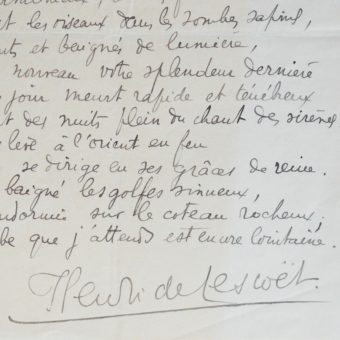 les oiseaux dans les sombres sapins,
et baignés de lumière,
nouveau votre splendeur dernière
jour meurt rapide et ténébreux
des nuits plein du chant des sirènes
levé à l'orient en feu
se dirige en ses grâces de reine.
baigné les golfes sinueux,
sur le coteau rocheux.
que j'attends est encore lointaine.
Henri de Lescoët.